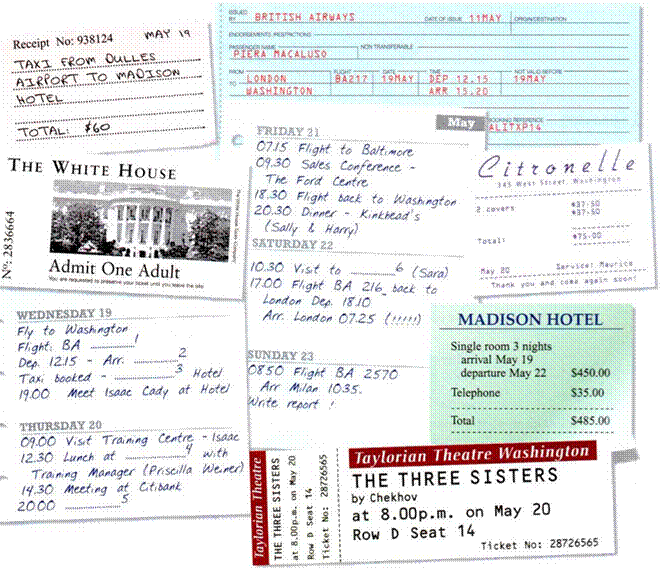 Receipt No: 938124 MAY 19
TAXI FROM DULLES
AIRPORT TO MADISON
HOTEL
TOTAL: $60
ISSUED BY BRITISH AIRWAYS DATE OF ISSUE 11MAY ORIGIN/DESTINATION
ENDORSEMENTS/RESTRICTIONS
PASSENGER NAME NON TRANSFERABLE
PIERA MACALUSO
FROM LONDON FLIGHT BA217 DATE 19MAY TIME DEP 12.15 NOT VALID BEFORE 19MAY
TO WASHINGTON ARR 15.20
BOOKING REFERENCE
ALITXP14
THE WHITE HOUSE
No: 2836664
Admit One Adult
You are requested to preserve your ticket until you leave the site
May
FRIDAY 21
07.15 Flight to Baltimore
09.30 Sales Conference -
The Ford Centre
18.30 Flight back to Washington
20.30 Dinner - Kinkhead's
(Sally & Harry)
SATURDAY 22
10.30 Visit to 6 (Sara)
17.00 Flight BA 216 back to
London Dep. 18.10
Arr. London 07.25 (!!!!!)
SUNDAY 23
0850 Flight BA 2570
Arr Milan 1035.
Write report !
Citronelle
345 West Street, Washington
2 covers $37.50
$37.50
Total: $75.00
May 20 Service: Maurice
Thank you and come again soon!
WEDNESDAY 19
Fly to Washington
Flight: BA 1
Dep. 12.15 - Arr. 2
Taxi booked - 3 Hotel
19.00 Meet Isaac Cady at Hotel
THURSDAY 20
09.00 Visit Training Centre - Isaac
12.30 Lunch at 4 with
Training Manager (Priscilla Weiner)
14.30 Meeting at Citibank
20.00 5
MADISON HOTEL
Single room 3 nights
arrival May 19
departure May 22 $450.00
Telephone $35.00
Total $485.00
Taylorian Theatre
THE THREE SISTERS
at 8.00p.m. on May 20
Row D Seat 14
Ticket No: 28726565
Taylorian Theatre Washington
THE THREE SISTERS
by Chekhov
at 8.00p.m. on May 20
Row D Seat 14
Ticket No: 28726565